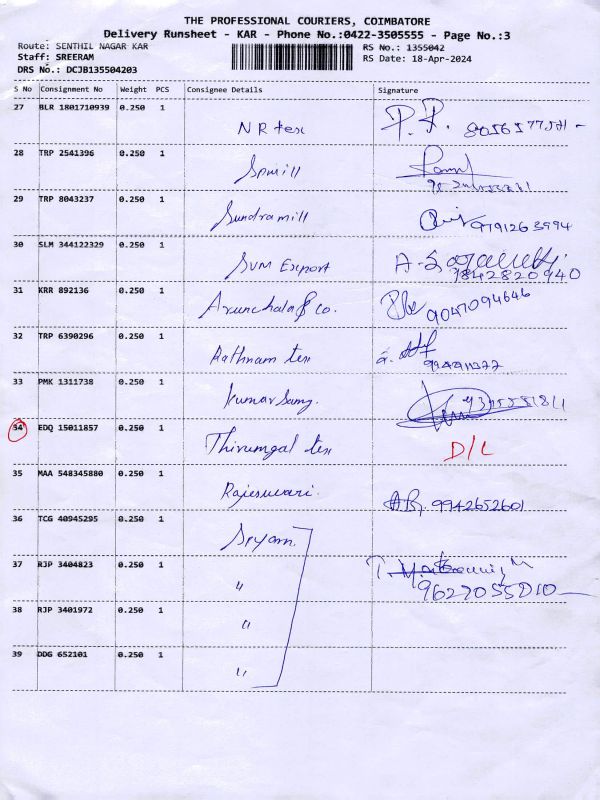 THE PROFESSIONAL COURIERS, COIMBATORE
Delivery Runsheet - KAR - Phone No.:0422-3505555 - Page No.:3
Route: SENTHIL NAGAR KAR RS No.: 1355042
Staff: SREERAM RS Date: 18-Apr-2024
DRS No.: DCJB135504203
S No Consignment No Weight PCS Consignee Details Signature
27 BLR 1801710939 0.250 1 N R tex P. R.
28 TRP 2541396 0.250 1
29 TRP 8043237 0.250 1 Sundramill 9791263994
30 SLM 344122329 0.250 1 SVM Export 9842820940
31 KRR 892136 0.250 1 Arunchala & co. 9047094646
32 TRP 6390296 0.250 1 Rathnam tex
33 PMK 1311738 0.250 1
34 EDQ 15011857 0.250 1 Thirumgal tex D/L
35 MAA 548345880 0.250 1 Rajeswari. 9942652601
36 TCG 40945295 0.250 1 Sryam.
37 RJP 3404823 0.250 1 "
9627055010
38 RJP 3401972 0.250 1 "
39 DDG 652101 0.250 1 "